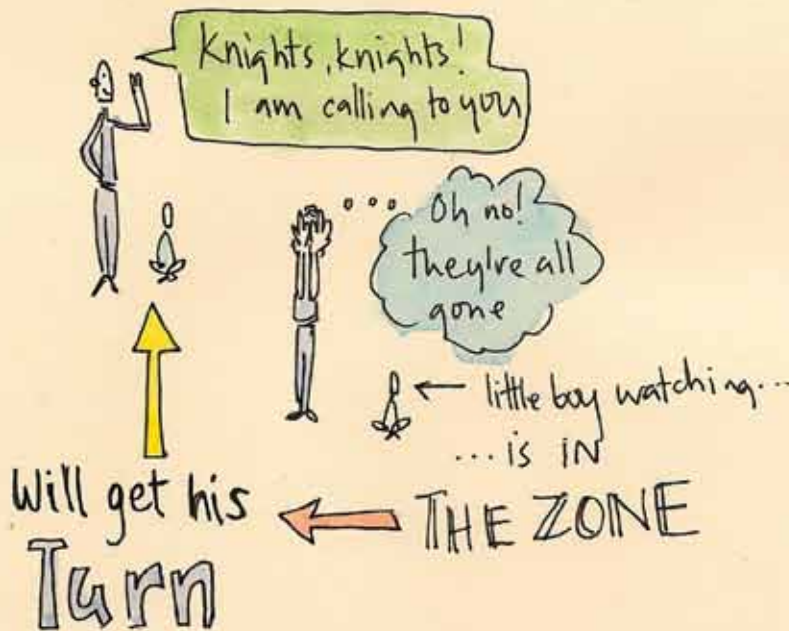 Knights, knights!
I am calling to you
Oh no!
they're all
gone
← little boy watching...
...is IN
THE ZONE
Will get his
Turn